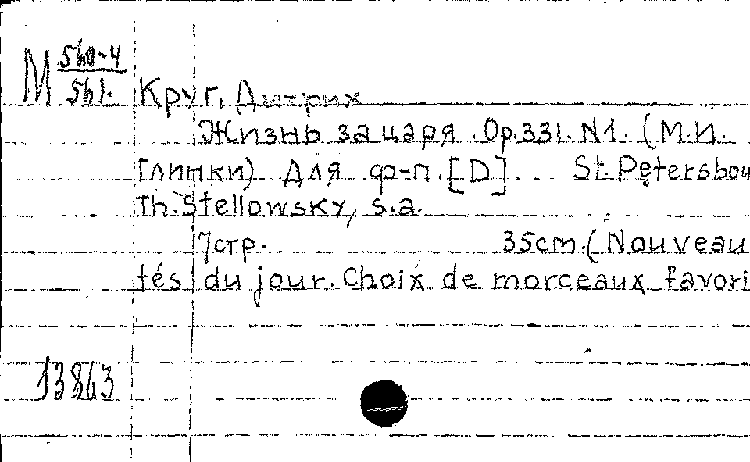 М 560-4
561.
Круг, Дитрих
Жизнь за царя. Ор.331. N1. (М.И.
Глинки) Для ф-п. [D]. St.Petersbou
Th.Stellowsky, s.a.
7стр. 35cm. (Nouveau
tés du jour. Choix de morceaux favori
13863